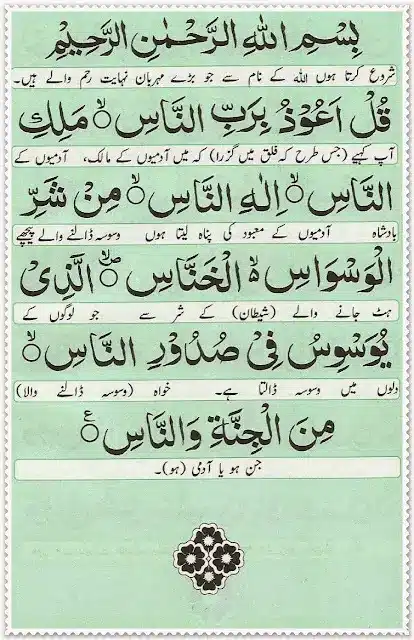 بِسْمِ اللهِ الرَّحْمٰنِ الرَّحِيْمِ
شروع کرتا ہوں اللہ کے نام سے جو بڑے مہربان نہایت رحم والے ہیں۔
قُلْ اَعُوْذُ بِرَبِّ النَّاسِ ۙ مَلِكِ
آپ کہیے (جس طرح کہ فلق میں گزرا) کہ میں آدمیوں کے مالک، آدمیوں کے
النَّاسِ ۙ اِلٰهِ النَّاسِ ۙ مِنْ شَرِّ
بادشاہ آدمیوں کے معبود کی پناہ لیتا ہوں وسوسہ ڈالنے والے پیچھے
الْوَسْوَاسِ ۙ الْخَنَّاسِ ۪ۙ الَّذِىْ
ہٹ جانے والے (شیطان) کے شر سے جو لوگوں کے
يُوَسْوِسُ فِىْ صُدُوْرِ النَّاسِ ۙ
دلوں میں وسوسہ ڈالتا ہے۔ خواہ (وسوسہ ڈالنے والا)
مِنَ الْجِنَّةِ وَالنَّاسِ ۧ
جن ہو یا آدمی (ہو)۔